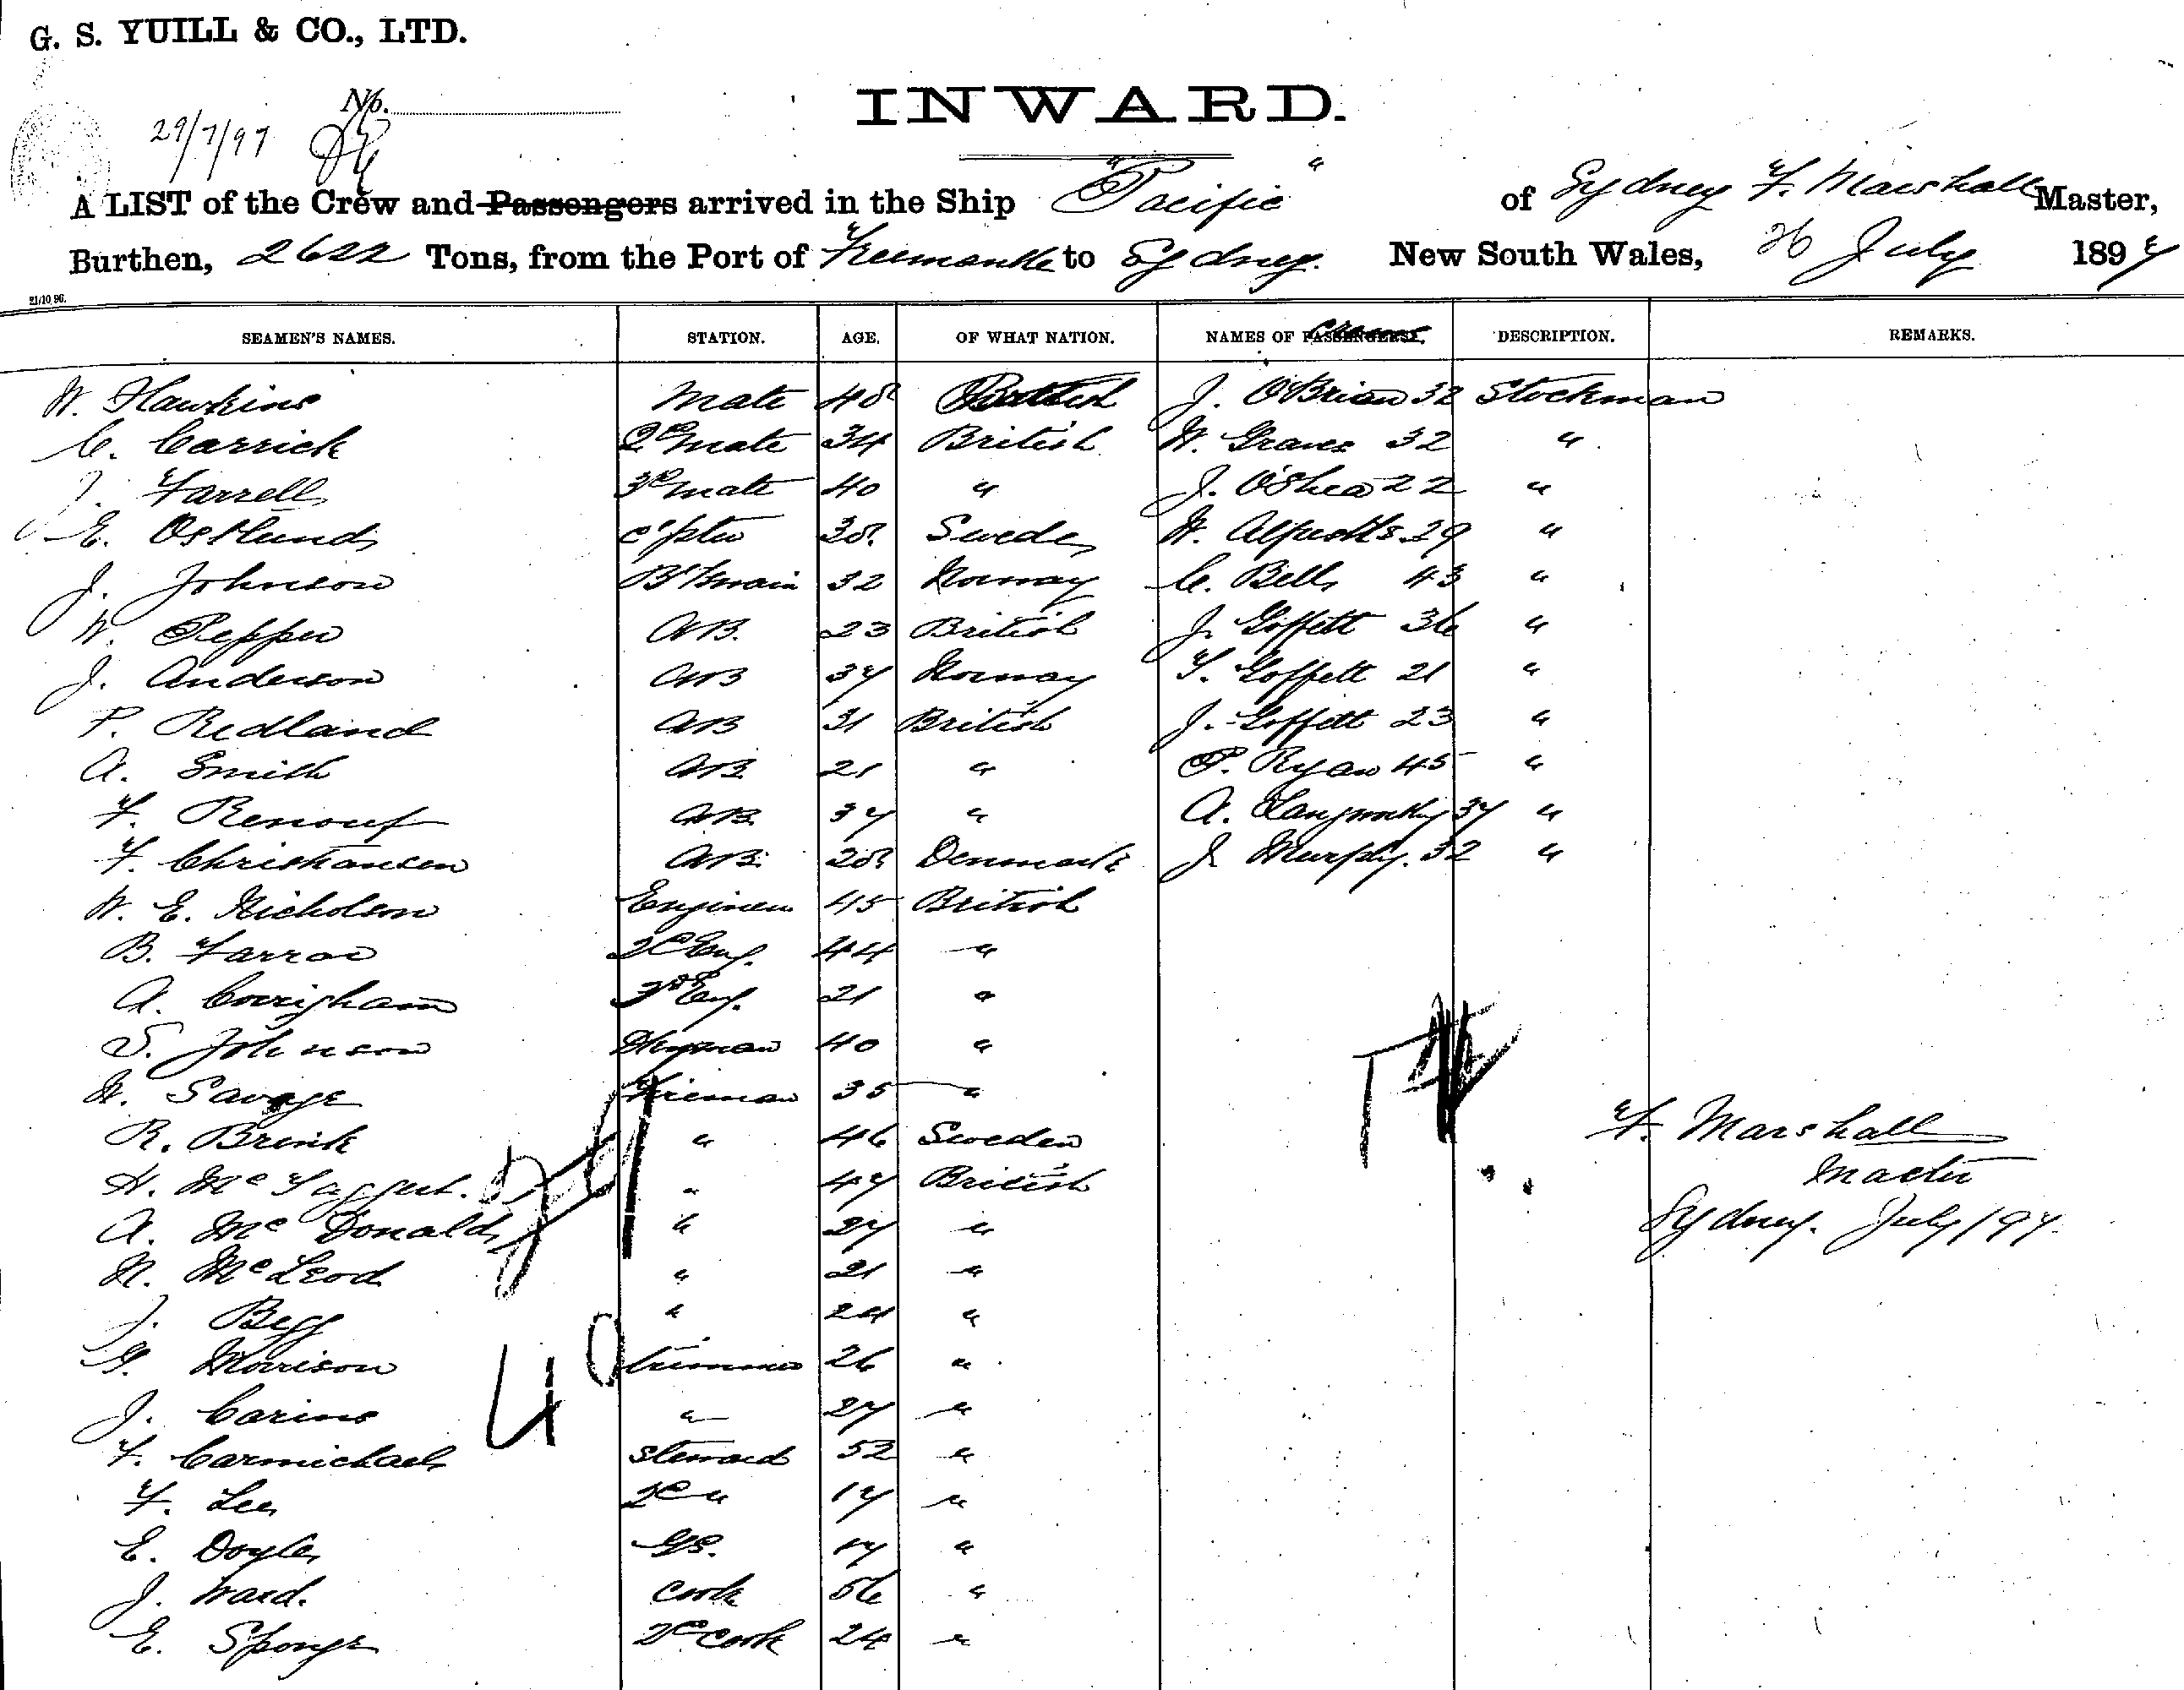 G. S. YUILL & CO., LTD.
No.
29/7/97
INWARD.
A LIST of the Crew and Passengers arrived in the Ship "Pacific" of Sydney F. Marshall Master,
Burthen, 2622 Tons, from the Port of Fremantle to Sydney. New South Wales, 26 July 1897
21/10 96.
SEAMEN'S NAMES. STATION. AGE. OF WHAT NATION. NAMES OF PASSENGERS. DESCRIPTION. REMARKS.
W. Hawkins Mate 48 British J. O'Brian 32 Stockman
C. Carrick 2nd Mate 34 British W. Graves 32 "
J. Farrell 3rd Mate 40 " J. O'Shea 22 "
E. Ostlund 38 Sweden W. 29 "
J. Johnson 32 Norway C. Bell 43 "
W. Pepper AB. 23 British J. Goffett 36 "
J. Anderson AB 37 Norway T. Goffett 21 "
P. Redland AB 31 British J. Goffett 23 "
A. Smith AB 21 " P. Ryan 45 "
F. Renouf AB. 37 " A. Langworthy 37 "
F. Christansen AB. 28 Denmark J. Murphy. 32 "
W. E. Nicholson Engineer 45 British
B. Farrow 2nd Eng. 44 "
A. Corrigham 3rd Eng. 21 "
S. Johnson 40 "
W. Savage Fireman 35 "
R. Brink " 46 Sweden
H. McTaggert. " 47 British
A. McDonald " 27 "
N. McLeod " 21 "
J. Begg " 24 "
G. Morrison trimmer 26 "
J. Carins " 27 "
F. Carmichael steward 52 "
F. Lee 2nd " 17 "
E. Doyle GS. 17 "
J. Ward. Cook 56 "
E. Sponge 2nd Cook 24 "
29
40
F. Marshall
Master
Sydney. July /97.